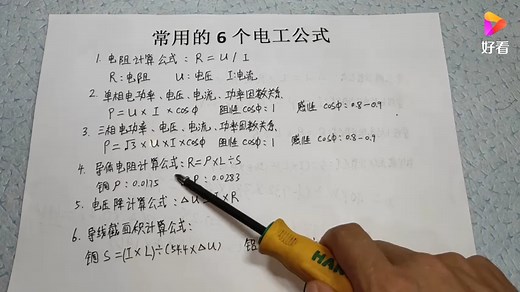 好看
常用的6个电工公式
1. 电阻计算公式: R=U/I
R:电阻 U:电压 I:电流
2. 单相电功率、电压、电流、功率因数关系
P=U×I×cosΦ 阻性cosΦ:1 感性cosΦ:0.8-0.9
3. 三相电功率、电压、电流、功率因数关系
P=√3×U×I×cosΦ 阻性cosΦ:1 感性cosΦ:0.8-0.9
4. 导体电阻计算公式:R=ρ×L÷S
铜ρ:0.0175 ρ:0.0283
5. 电压降计算公式:ΔU=I×R
6. 导线截面积计算公式:
铜S=(I×L)÷(54.4×ΔU) 铝
HAN